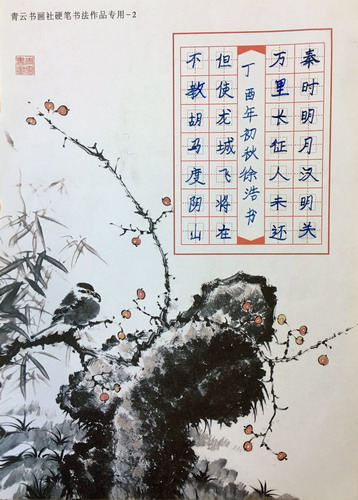 青云书画社硬笔书法作品专用-2
秦时明月汉明关
万里长征人未还
丁酉年初秋徐浩书
但使尤城飞将在
不教胡马度阴山